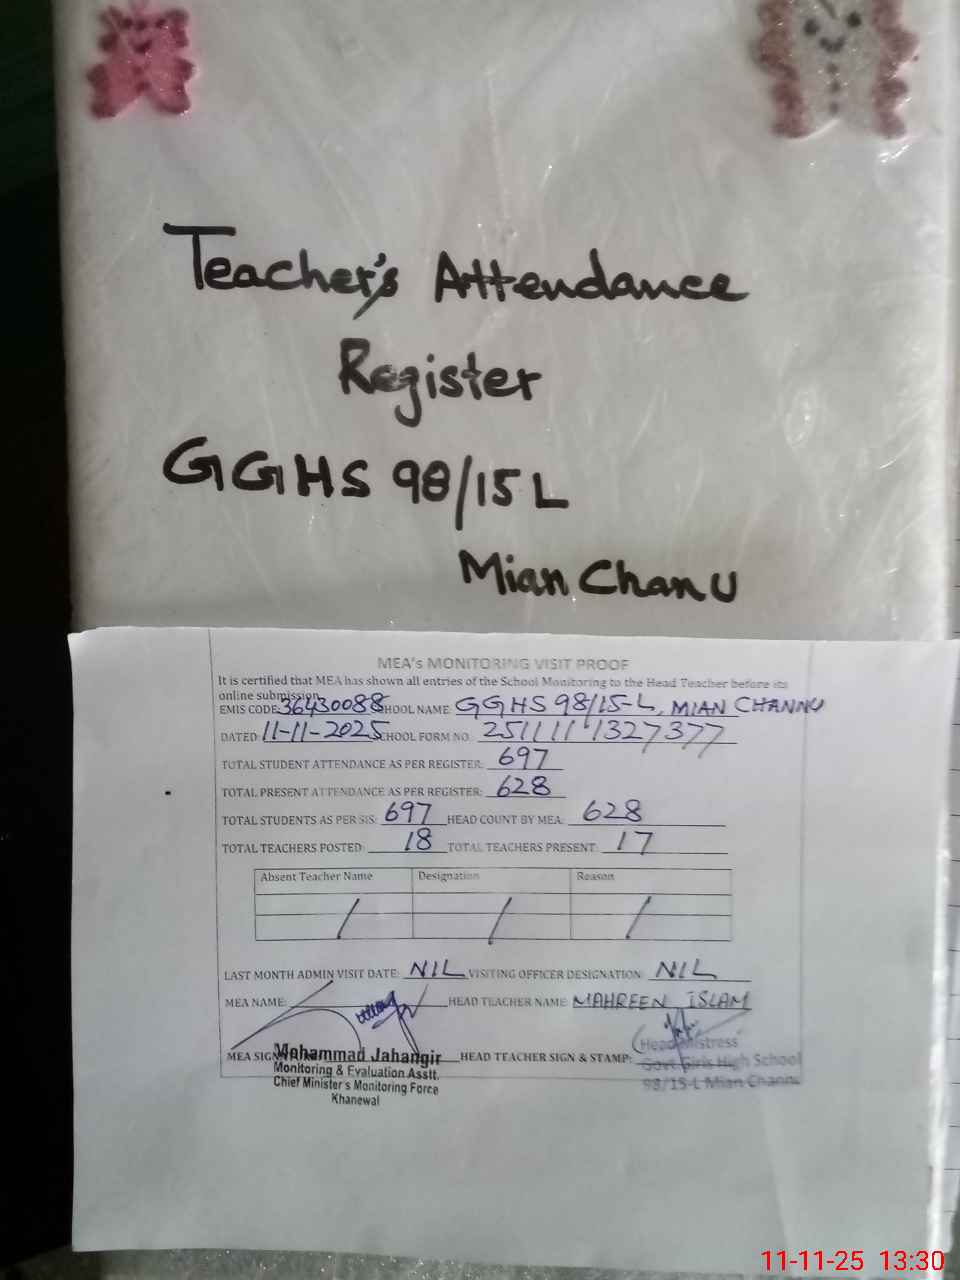 Teacher's Attendance
Register
GGHS 98/15 L
Mian Chanu
MEA's MONITORING VISIT PROOF
It is certified that MEA has shown all entries of the School Monitoring to the Head Teacher before its
online submission.
EMIS CODE: 36430088 SCHOOL NAME: GGHS 98/15-L, MIAN CHANNU
DATED: 11-11-2025 SCHOOL FORM NO. 2511111327377
TOTAL STUDENT ATTENDANCE AS PER REGISTER: 697
TOTAL PRESENT ATTENDANCE AS PER REGISTER: 628
TOTAL STUDENTS AS PER SIS: 697 HEAD COUNT BY MEA: 628
TOTAL TEACHERS POSTED: 18 TOTAL TEACHERS PRESENT: 17
Absent Teacher Name Designation Reason
/ / /
LAST MONTH ADMIN VISIT DATE: NIL VISITING OFFICER DESIGNATION: NIL
MEA NAME: HEAD TEACHER NAME: MAHREEN ISLAM
MEA SIGN Mohammad Jahangir HEAD TEACHER SIGN & STAMP: Head Mistress
Monitoring & Evaluation Asstt. Govt. Girls High School
Chief Minister's Monitoring Force 98/15-L Mian Channu
Khanewal
11-11-25 13:30